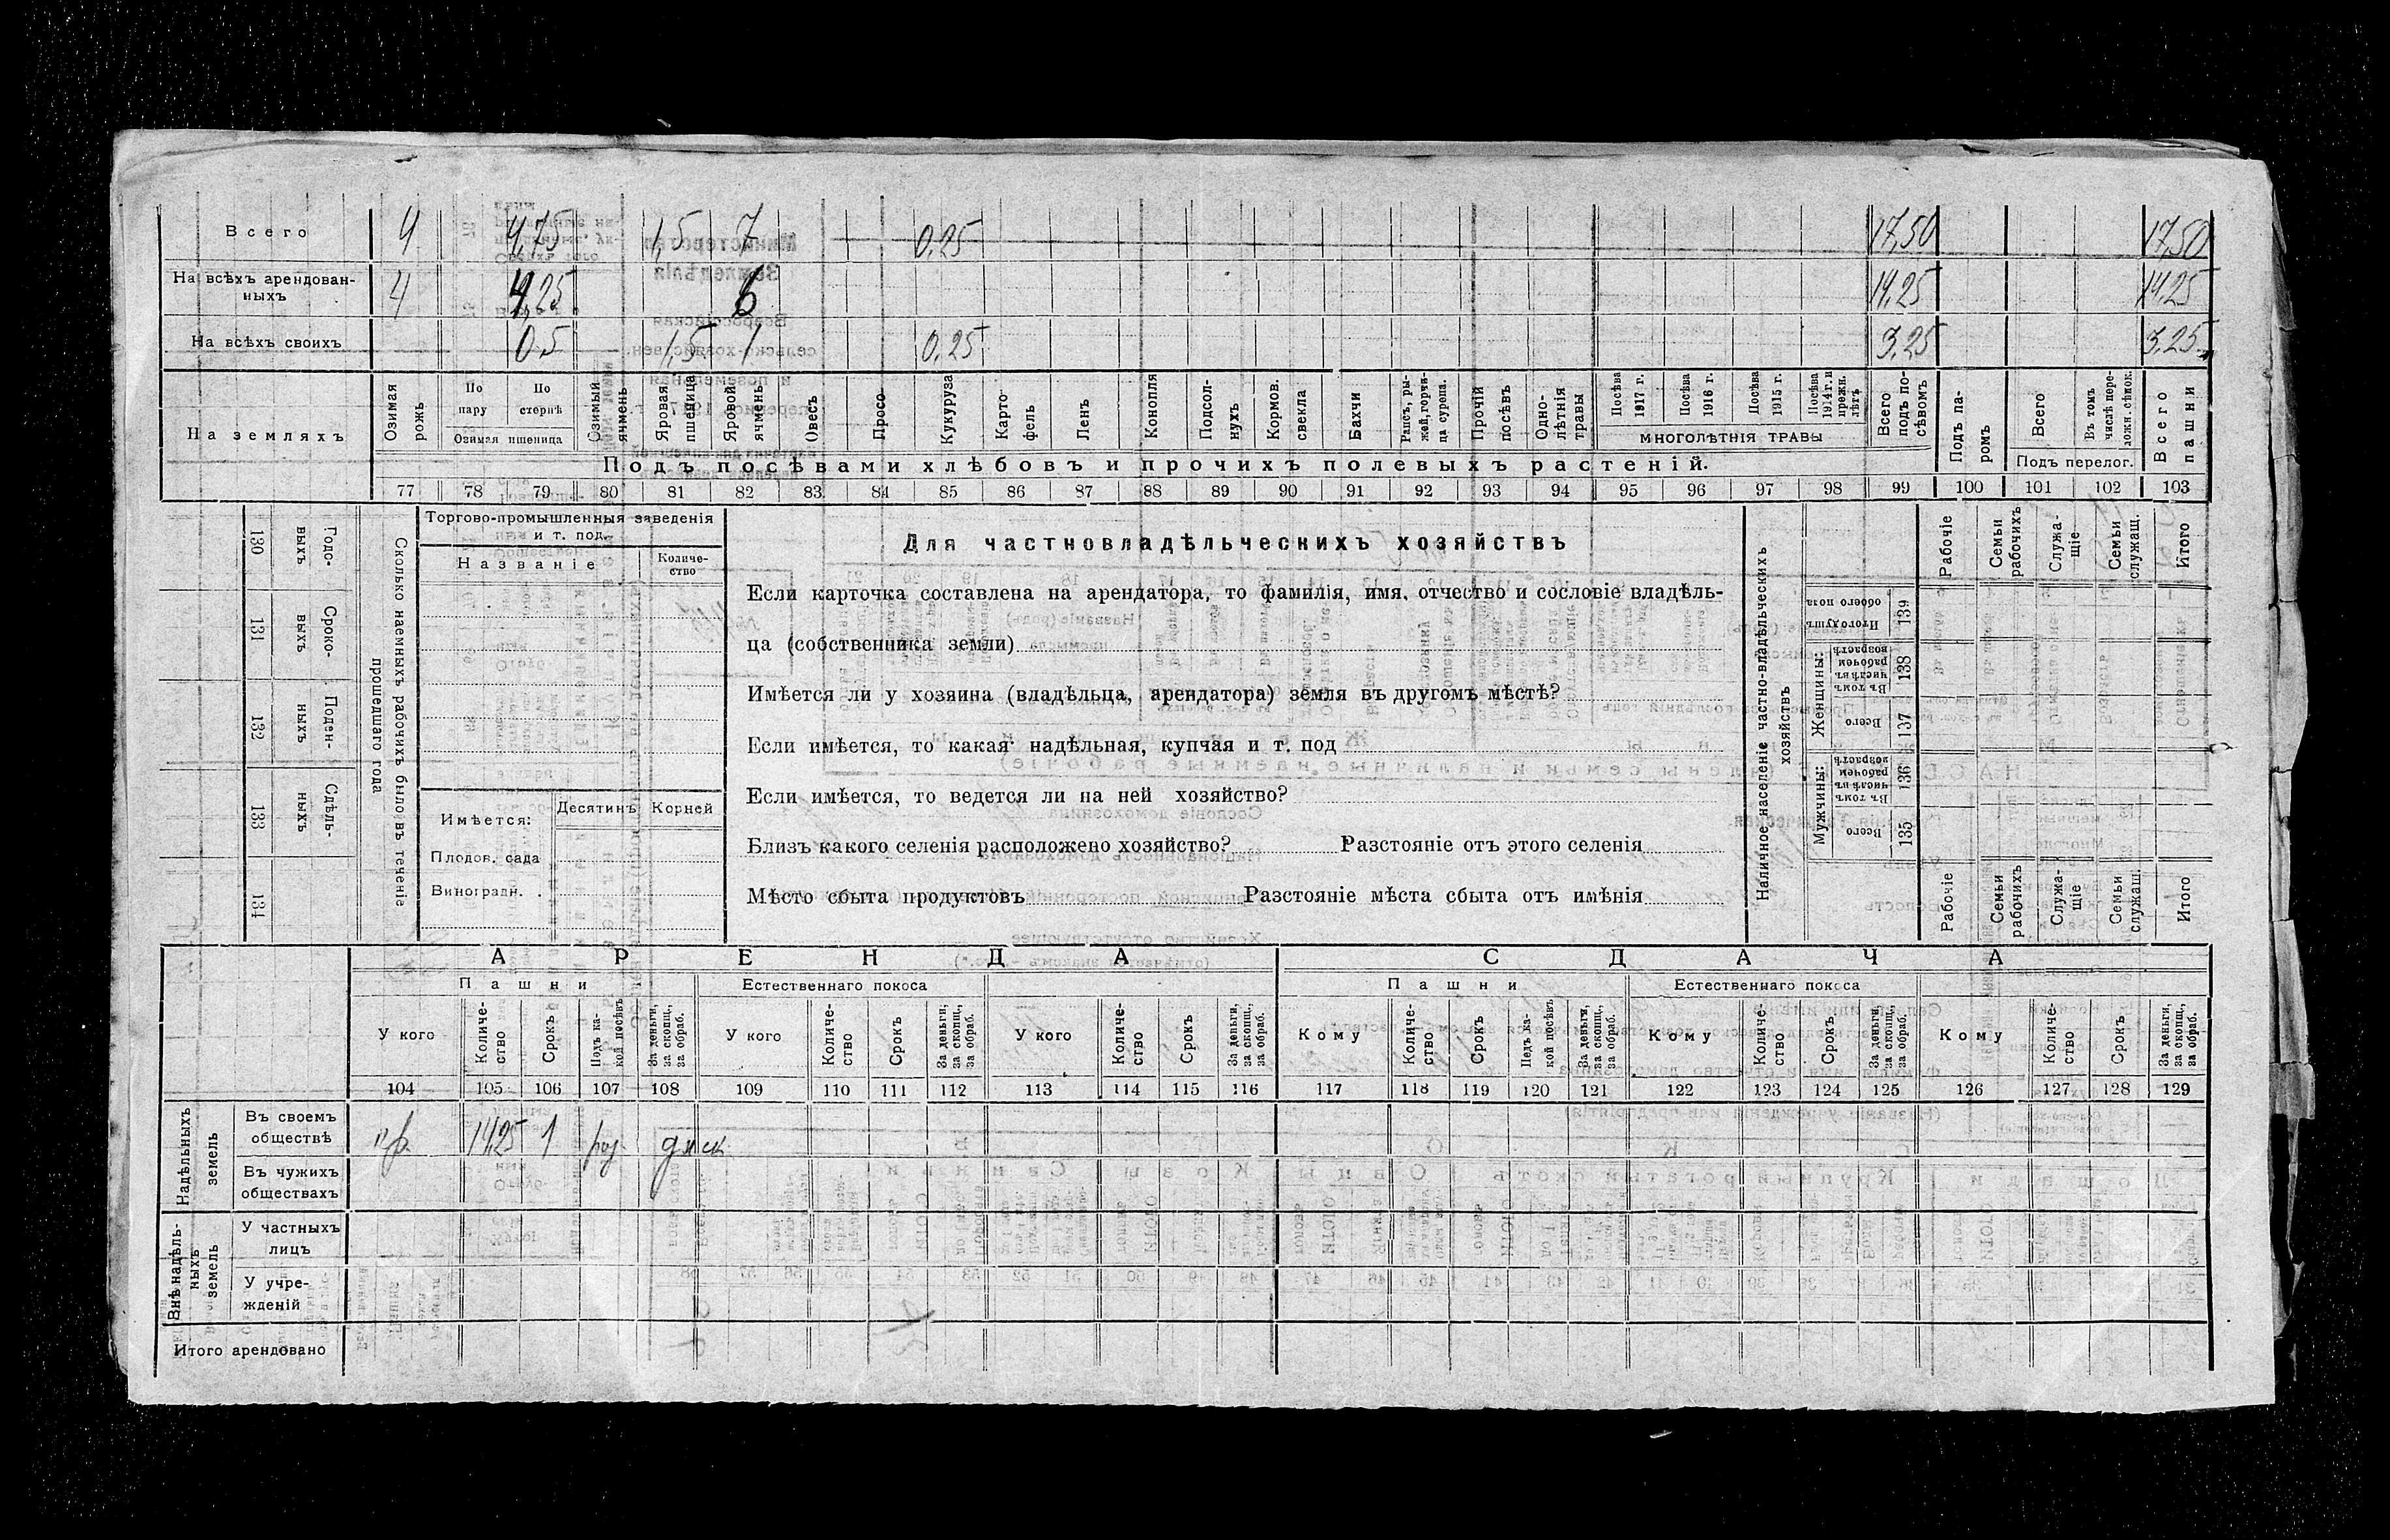 Всего 4 4,75 1,5 7 0,25 17,50 17,50
На всѣхъ арендован-
ныхъ 4 4,25 6 14,25 14,25
На всѣхъ своихъ 0,5 1,5 1 0,25 3,25 3,25
На земляхъ
Озимая рожь
По пару
По стернѣ
Озимая пшеница
Озимый ячмень
Яровая пшеница
Яровой ячмень
Овесъ
Просо
Кукуруза
Карто-
фель
Ленъ
Конопля
Подсол-
нухъ
Кормов. свекла
Бахчи
Рапсъ, ры-
жей, горчи-
ца сурепа.
Прочій посѣвъ
Одно-
лѣтнія травы
Посѣва 1917 г.
Посѣва 1916 г.
Посѣва 1915 г.
Посѣва 1914 г. и прежн. лѣтъ
МНОГОЛѢТНІЯ ТРАВЫ
Всего подъ по-
сѣвомъ
Подъ па-
ромъ
Всего
Въ томъ числѣ пере-
ложн. сѣнок.
Подъ перелог.
Всего пашни
Подъ посѣвами хлѣбовъ и прочихъ полевыхъ растеній.
77 78 79 80 81 82 83 84 85 86 87 88 89 90 91 92 93 94 95 96 97 98 99 100 101 102 103
130 Годо-
выхъ
131 Сроко-
выхъ
132 Поден-
ныхъ
133 Сдѣль-
ныхъ
134
Сколько наемныхъ рабочихъ было въ теченіе
прошедшаго года
Торгово-промышленныя заведенія
и т. под.
Названіе
Количе-
ство
Имѣется:
Десятинъ
Корней
Плодов. сада
Виноградн.
Для частновладѣльческихъ хозяйствъ
Если карточка составлена на арендатора, то фамилія, имя, отчество и сословіе владѣль-
ца (собственника земли)
Имѣется ли у хозяина (владѣльца, арендатора) земля въ другомъ мѣстѣ?
Если имѣется, то какая надѣльная, купчая и т. под
Если имѣется, то ведется ли на ней хозяйство?
Близъ какого селенія расположено хозяйство? Разстояніе отъ этого селенія
Мѣсто сбыта продуктовъ Разстояніе мѣста сбыта отъ имѣнія
Наличное населеніе частно-владѣльческихъ
хозяйствъ
Рабочіе
Семьи рабочихъ
Служа-
щіе
Семьи служащ.
Итого
Итого душъ обоего пола 139
Женщины:
Въ томъ числѣ въ рабочем возрастѣ 138
Всего 137
Мужчины:
Въ томъ числѣ въ рабочем возрастѣ 136
Всего 135
Рабочіе
Семьи рабочихъ
Служа-
щіе
Семьи служащ.
Итого
АРЕНДА
СДАЧА
Пашни
Естественнаго покоса
Пашни
Естественнаго покоса
У кого
Количе-
ство
Срокъ
Подъ ка-
кой посѣвъ
За деньги, за скопщ., за обраб.
У кого
Количе-
ство
Срокъ
За деньги, за скопщ., за обраб.
У кого
Количе-
ство
Срокъ
За деньги, за скопщ., за обраб.
Кому
Количе-
ство
Срокъ
Подъ ка-
кой посѣвъ
За деньги, за скопщ., за обраб.
Кому
Количе-
ство
Срокъ
За деньги, за скопщ., за обраб.
Кому
Количе-
ство
Срокъ
За деньги, за скопщ., за обраб.
104 105 106 107 108 109 110 111 112 113 114 115 116 117 118 119 120 121 122 123 124 125 126 127 128 129
Надѣльныхъ
земель
Въ своемъ
обществѣ 14,25 1
Въ чужихъ
обществахъ
Внѣ надѣль-
ныхъ
земель
У частныхъ
лицъ
У учре-
жденій
Итого арендовано